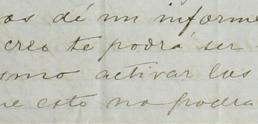 os dé un informe
creo te podrá ser
smo activar las
ue esto no podra